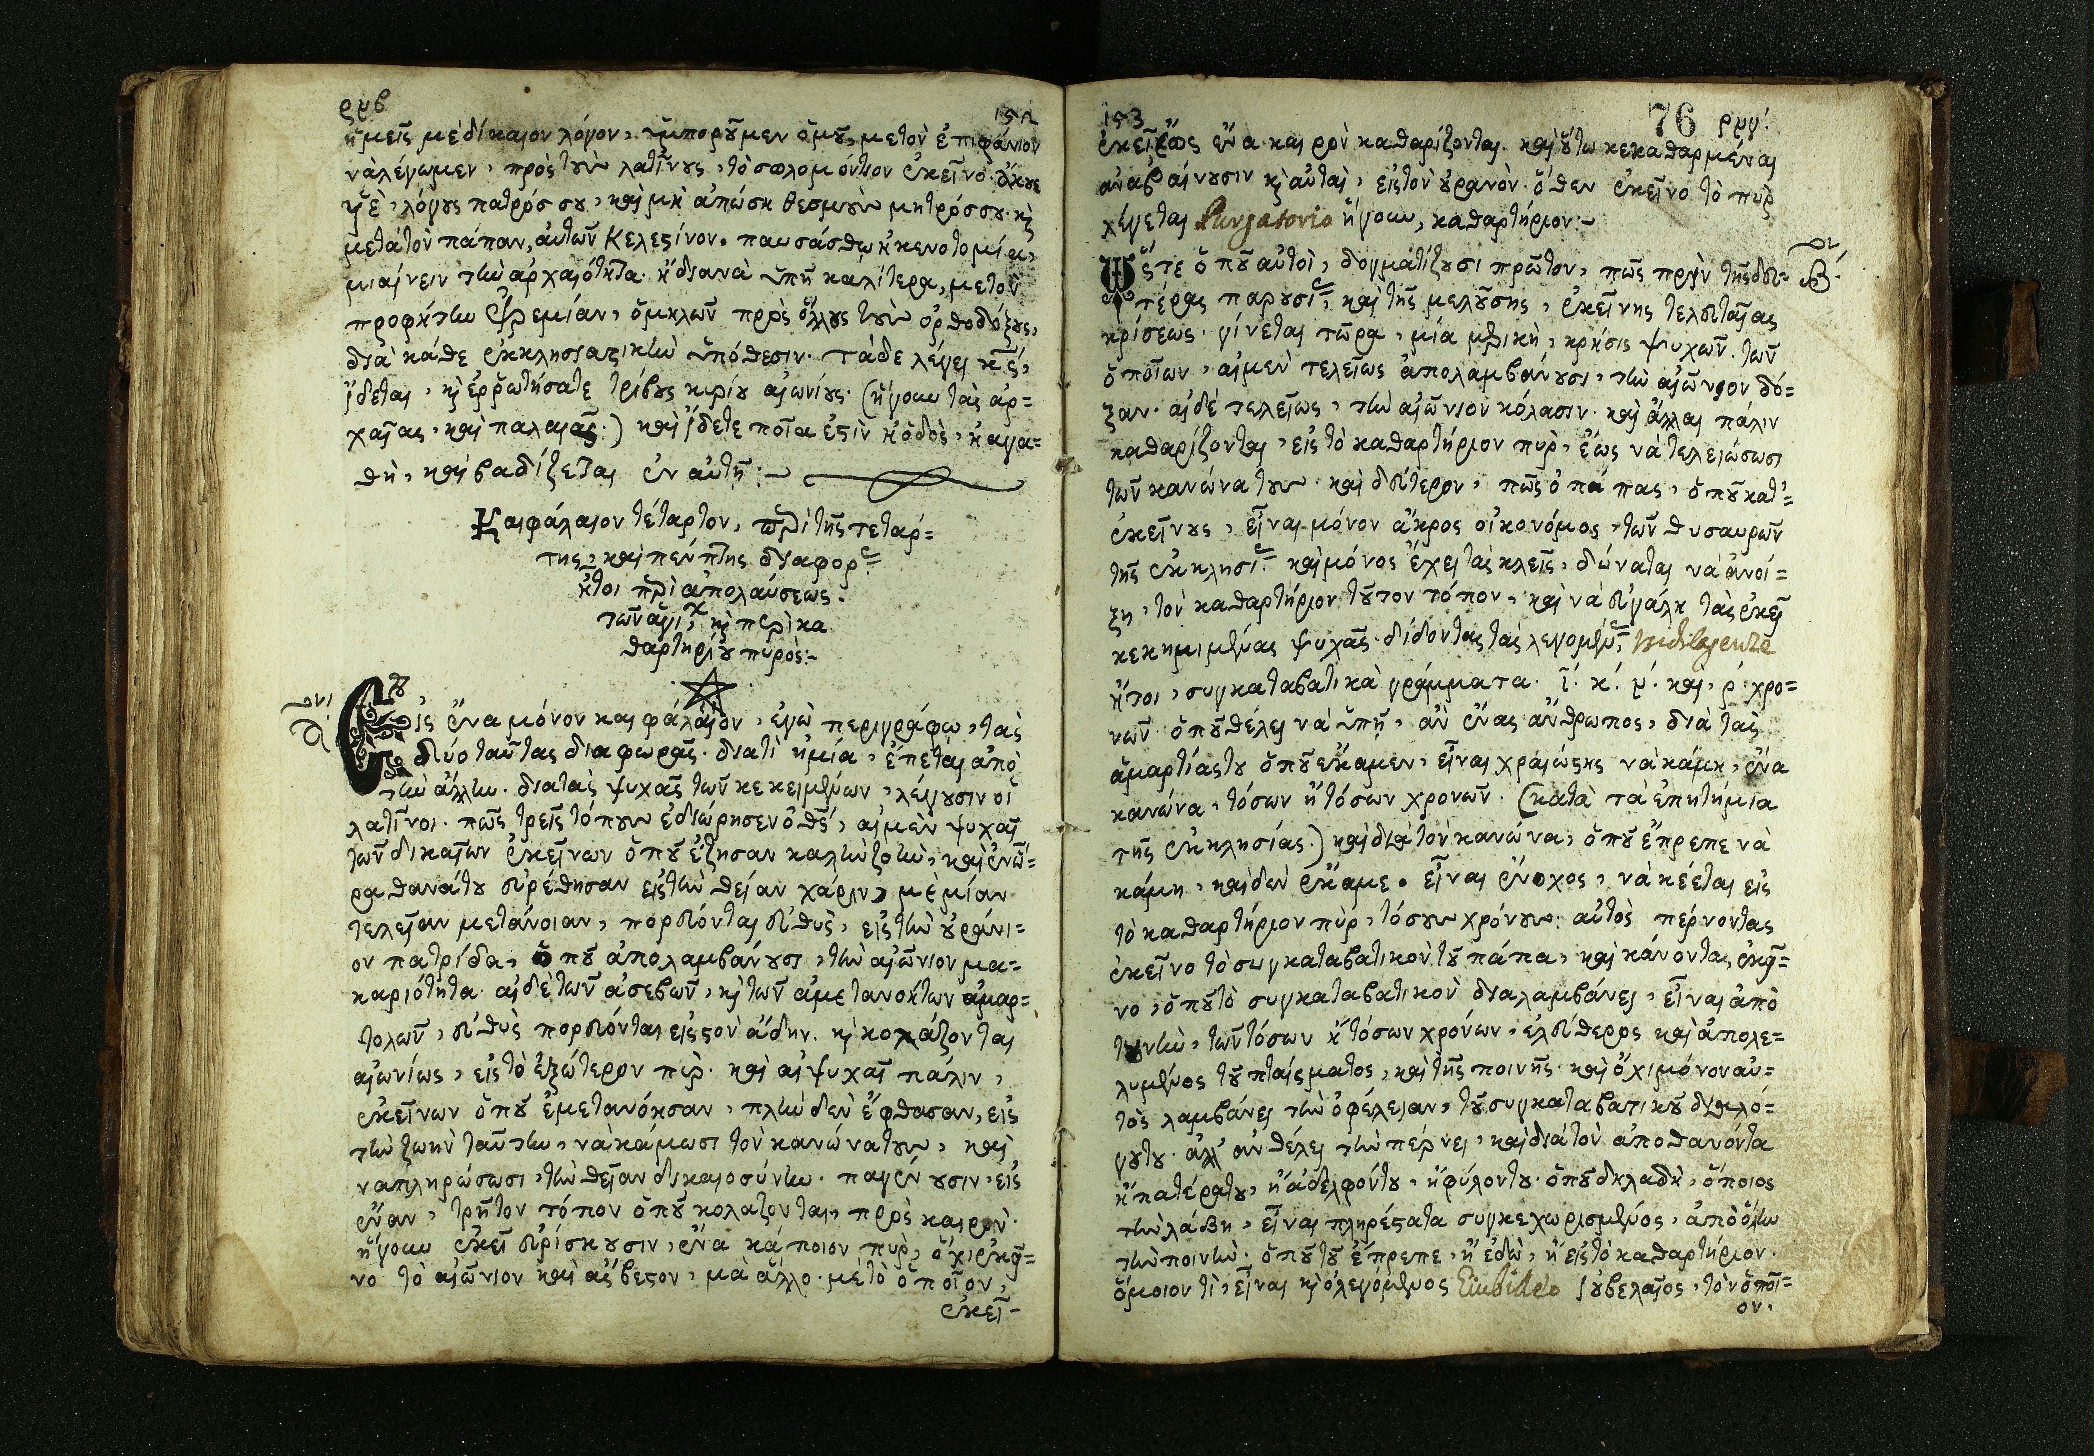 ρνβ 152
ἡμεῖς μὲ δίκαιον λόγον, ἠμποροῦμεν ὁμοῦ, με τὸν ἐπιφάνιον
νὰ λέγωμεν, πρὸς τοὺς λατίνους, τὸ σολομόντιον ἐκεῖνο· ἄκουε
υἱὲ, λόγους πατρός σου, καὶ μὴ ἀπώσῃ θεσμοὺς μητρός σου· κὶ
μετὰ τὸν πάπαν, αὐτῶν Κελεστίνον. παυσάσθω ἡ κενοτομία,
μιαίνειν τὴν ἀρχαιότητα· ἢ διανὰ εἰπῆ καλίτερα, με τὸν
προφήτην Ἱερεμίαν, ὁμιλῶν πρὸς ὅλους τοὺς ὀρθοδόξους,
διὰ κάθε ἐκκλησιαστικὴν ὑπόθεσιν· τάδε λέγει κς,
ἴδεται, κὶ ἐρρωτήσατε τρίβους κυρίου αἰωνίους· (ἤγουν τὰς ἀρ=
χαίας, καὶ παλαιάς.) καὶ ἴδετε ποῖα ἐστὶν ἡ ὁδὸς, ἡ αγα=
θὴ, καὶ βαδίζεται ἐν αὐτῇ:~
Καιφάλαιον τέταρτον, περὶ τῆς τετάρ=
της, καὶ πέμπτης διαφορᾶς
ἤτοι περὶ ἀπολαύσεως.
τῶν ἁγίων, κὶ περὶ κα
θαρτηρίου πυρός:~
α
Εἰς ἕνα μόνον καιφάλαιον, ἐγὼ περιγράφω, τὰς
δύο ταύτας διαφωράς· διατὶ ἡ μία, ἕπεται ἀπὸ
τὴν ἄλλην. διατὰς ψυχὰς τῶν κεκειμένων, λέγουσιν οἱ
λατίνοι· πῶς τρεῖς τόπους ἐδιώρησεν ὁ θς, αἱ μὲν ψυχαὶ
τῶν δικαίων ἐκείνων ὁποῦ ἔζησαν καλὴν ζωὴν, καὶ ἐν ὥ=
ρα θανάτου εὑρέθησαν εἰς τὴν θείαν χάριν, μὲ μίαν
τελείαν μετάνοιαν, πορεύονται εὐθὺς, εἰς τὴν οὐράνι=
ον πατρίδα, ὁποῦ ἀπολαμβάνουσι, τὴν αἰώνιον μα=
καριότητα· αἱ δὲ τῶν ἀσεβῶν, κὶ τῶν ἀμετανοήτων ἁμαρ=
τολῶν, εὐθὺς πορεύονται εἰς τὸν ἅδην. κὶ κολάζονται
αἰωνίως, εἰς τὸ ἐξώτερον πῦρ· καὶ αἱ ψυχαὶ πάλιν,
ἐκείνων ὁποῦ ἐμετανόησαν, πλὴν δὲν ἔφθασαν, εἰς
τὴν ζωὴν ταύτην, νὰ κάμωσι τὸν κανώνα τους, καὶ
να πληρώσωσι, τὴν θείαν δικαιοσύνην. παγένουσιν, εἰς
ἕναν, τρίτον τόπον ὁποῦ κολάζονται, πρὸς καιρὸν·
ἤγουν ἐκεῖ εὑρίσκουσιν, ἕνα κάποιον πῦρ, ὄχι ἐκεῖ=
νο τὸ αἰώνιον καὶ ἄσβεστον, μὰ ἄλλο· μὲ τὸ ὁποῖον,
ἐκεῖ-
153 76 ρνγ
ἐκεῖ ἕως ἕνα καιρὸν καθαρίζονται· καὶ οὕτω κεκαθαρμέναι
αναβαίνουσιν κὶ αὐταὶ, εἰς τὸν οὐρανὸν· ὅθεν ἐκεῖνο τὸ πῦρ
λέγεται Purgatorio ἤγουν, καθαρτήριον:~
β
Ὥστε ὁποῦ αὐτοὶ, δογματίζουσι πρῶτον, πῶς πρὶν τῆς δευ=
τέρας παρουσίας, καὶ τῆς μελούσης, ἐκείνης τελευταίας
κρίσεως· γίνεται τῶρα, μία μερικὴ, κρίσις ψυχῶν. τῶν
ὁποίων, αἱ μὲν τελείως ἀπολαμβάνουσι, τὴν αἰώνιον δό=
ξαν· αἱ δὲ τελείως, τὴν αἰώνιον κόλασιν· καὶ ἄλλαι πάλιν
καθαρίζονται, εἰς τὸ καθαρτήριον πῦρ, ἕως νὰ τελειώσωσι
τὸν κανώνα τους· καὶ δεύτερον, πῶς ὁ πάπας, ὁποῦ κατ'=
ἐκείνους, εἶναι μόνον ἄκρος οἰκονόμος, τῶν θυσαυρῶν
τῆς ἐκκλησίας καὶ μόνος ἔχει τὰς κλεῖς, δύναται νὰ ἀνοί=
ξη, τὸν καθαρτήριον τοῦτον τόπον, καὶ νὰ εὐγάλη τὰς ἐκεῖ
κεκημημένας ψυχὰς· δίδοντας τὰς λεγομένας, indulgenze
ἤτοι, συγκαταβατικὰ γράμματα· ι. κ. ν. καὶ, ρ. χρο=
νῶν· ὁποῦ θέλει νὰ εἰπῆ, ἀν ἕνας ἄνθρωπος, διὰ τὰς
ἁμαρτίας του ὁποῦ ἔκαμεν, εἶναι χραιώστης νὰ κάμη, ἕνα
κανώνα, τόσων ἢ τόσων χρονῶν. (κατὰ τὰ ἐπητήμια
τῆς ἐκκλησίας.) καὶ διὰ τὸν κανώνα, ὁποῦ ἔπρεπε νὰ
κάμη, καὶ δὲν ἔκαμε. εἶναι ἔνοχος, νὰ κέεται εἰς
τὸ καθαρτήριον πῦρ, τόσους χρόνους. αὐτὸς πέρνοντας
ἐκεῖνο τὸ συγκαταβατικὸν τοῦ πάπα, καὶ κάνοντας ἐκεῖ=
νο, ὁποῦ τὸ συγκαταβατικὸν διαλαμβάνει, εἶναι ἀπὸ
τὴν ποινὴν, τῶν τόσων ἢ τόσων χρόνων, ἐλεύθερος καὶ ἀπολε=
λυμένος τοῦ πταίσματος, καὶ τῆς ποινῆς· καὶ ὄχι μόνον αὐ=
τὸς λαμβάνει τὴν ὀφέλειαν, τοῦ συγκαταβατικοῦ δια λό=
γου του· ἀλλ' ἀν θέλει τὴν πέρνει, καὶ διὰ τὸν ἀποθανόντα
ἢ πατέρα του, ἢ ἀδελφόν του, ἢ φύλον του· ὁποῦ δηλαδὴ, ὅποιος
τὴν λάβη, εἶναι πληρέστατα συγκεχωρισμένος, ἀπὸ ὅλην
τὴν ποινὴν· ὁποῦ τοῦ ἔπρεπε, ἢ ἐδῶ, ἢ εἰς τὸ καθαρτήριον.
ὅμοιον τὶ, εἶναι κὶ ὁ λεγόμενος Giubileo ἰουβελαῖος, τὸν ὁποῖ=
ον,